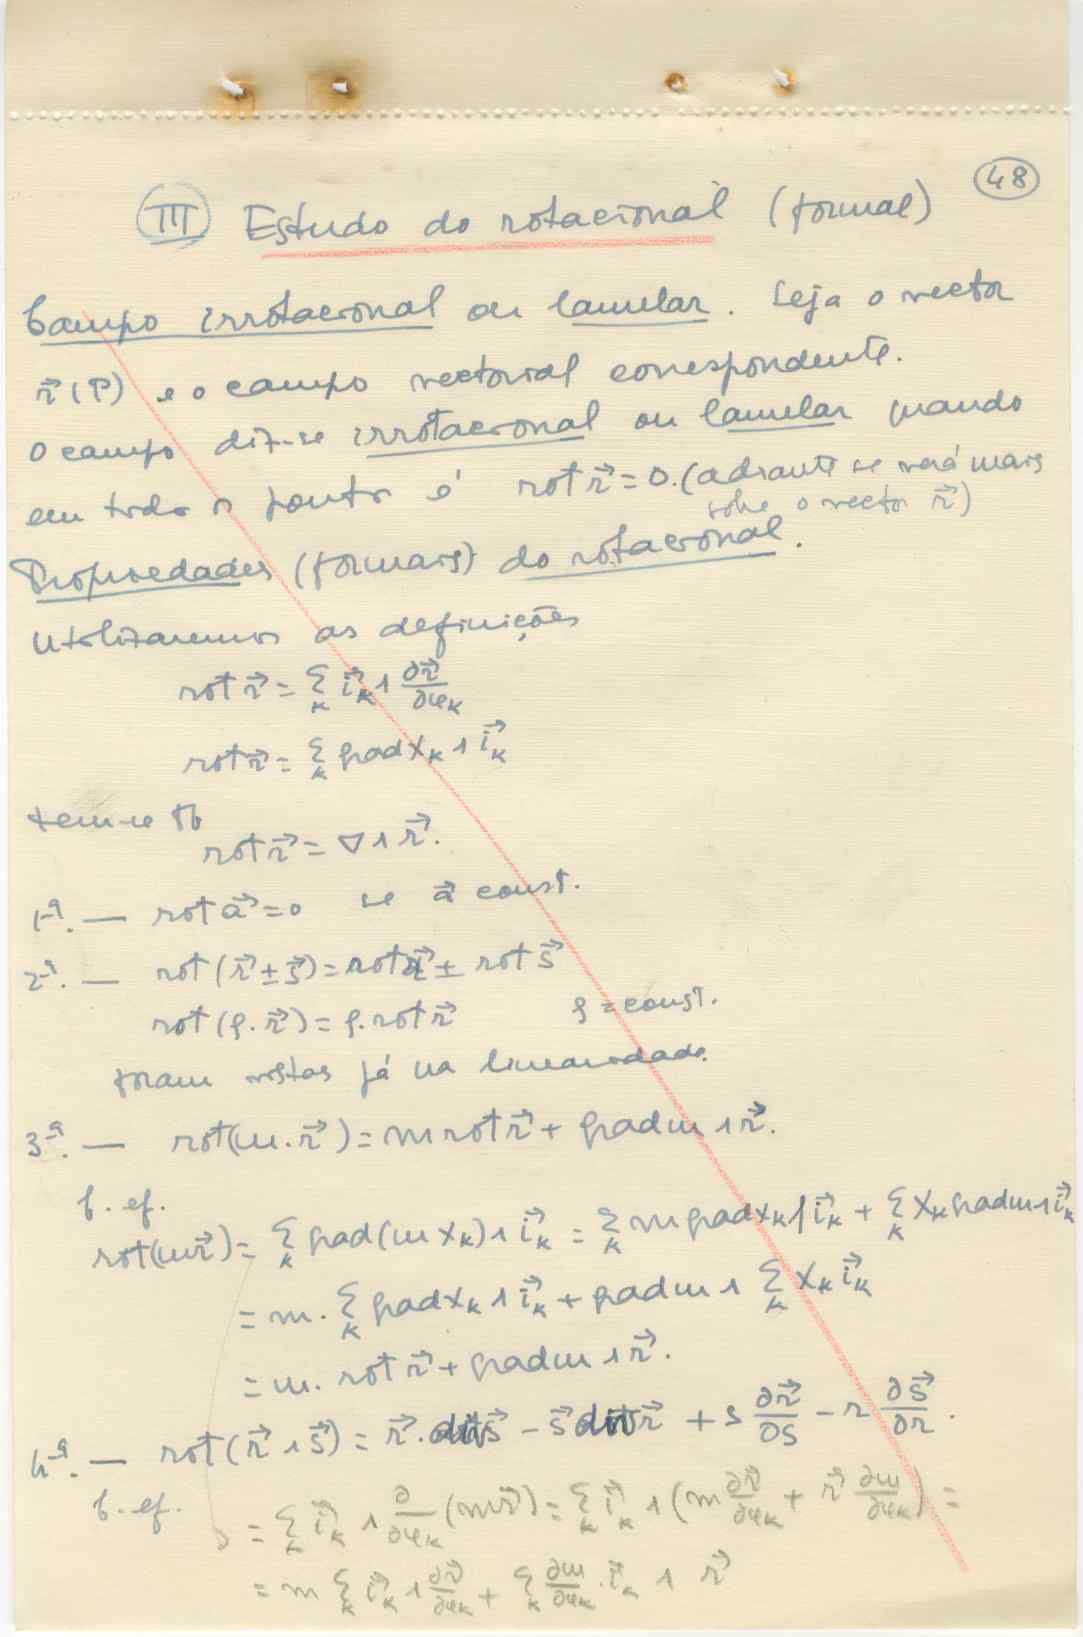 48
III Estudo do rotacional (formal)
Campo irrotacional ou lamelar. Seja o vector
r⃗(P) e o campo vectorial correspondente.
O campo diz-se irrotacional ou lamelar quando
em todo o ponto é rot r⃗ = 0. (adiante se verá mais
sobre o vector r⃗)
Propriedades (formais) do rotacional.
Utilizaremos as definições
rot r⃗ = Σ_k i⃗_k ∧ ∂r⃗/∂u_k
rot r⃗ = Σ_k grad X_k ∧ i⃗_k
tem-se tb
rot r⃗ = ∇ ∧ r⃗.
1ª. — rot a⃗ = 0 se a⃗ const.
2ª. — rot (r⃗ ± s⃗) = rot r⃗ ± rot s⃗
rot (ρ. r⃗) = ρ. rot r⃗ ρ = const.
foram vistas já na linearidade.
3ª. — rot(m. r⃗) = m rot r⃗ + grad m ∧ r⃗.
C. ef.
rot(m r⃗) = Σ_k grad(m X_k) ∧ i⃗_k = Σ_k m grad X_k ∧ i⃗_k + Σ_k X_k grad m ∧ i⃗_k
= m. Σ_k grad X_k ∧ i⃗_k + grad m ∧ Σ_k X_k i⃗_k
= m. rot r⃗ + grad m ∧ r⃗.
4ª. — rot (r⃗ ∧ s⃗) = r⃗. div s⃗ − s⃗ div r⃗ + s ∂r⃗/∂s − r ∂s⃗/∂r.
C. ef.
= Σ_k i⃗_k ∧ ∂/∂u_k (m r⃗) = Σ_k i⃗_k ∧ (m ∂r⃗/∂u_k + r⃗ ∂m/∂u_k) =
= m Σ_k i⃗_k ∧ ∂r⃗/∂u_k + Σ_k ∂m/∂u_k . i⃗_k ∧ r⃗